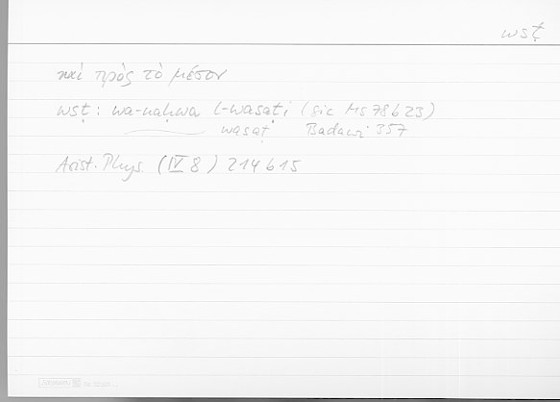 wsṭ
καί πρός τὸ μέσον
wsṭ : wa-naḥwa l-wasaṭi (sic Ms 78b23)
wasaṭ Badawi 357
Arist. Phys. (IV 8) 214b15